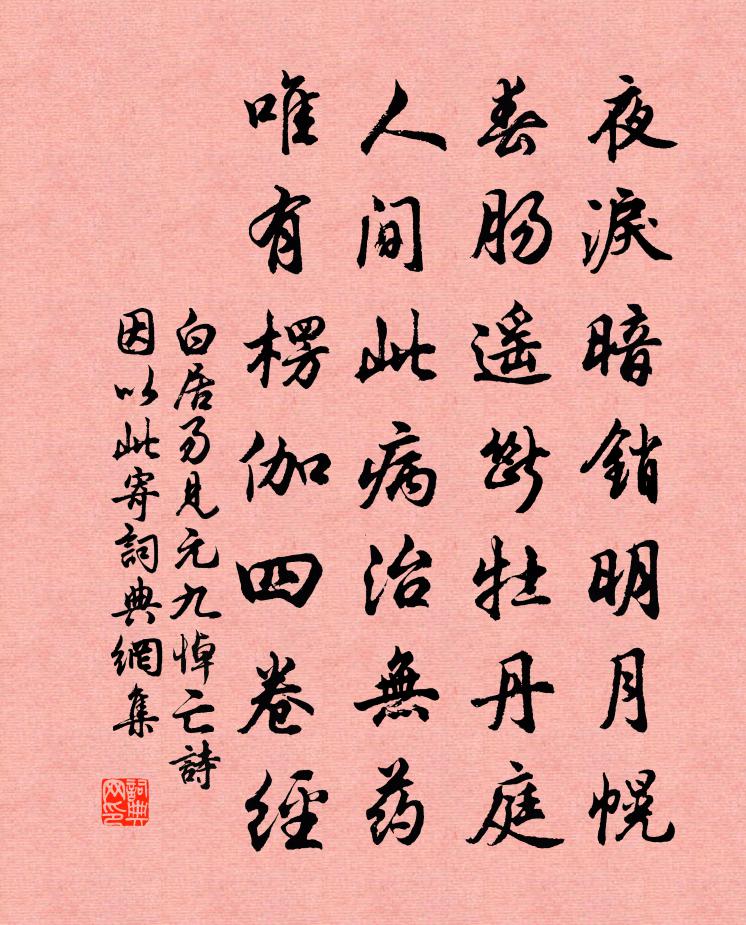 夜淚暗銷明月幌
春腸遥斷牡丹庭
人间此病治無药
唯有楞伽四卷經
白居易見元九悼亡詩
因以此寄詞典網集
詞典网印